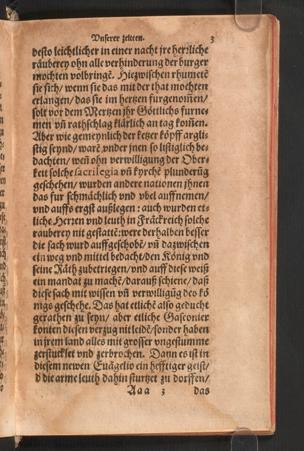 Vnserer zeitten. 3
desto leichtlicher in einer nacht jre herꝛliche
räuberey ohn alle verhinderung der burger
mochten volbringē. Hiezwischen rhumetē
sie sich/ wenn sie das mit der that mochten
erlangen/ das sie im hertzen furgenom̄en/
solt vor dem Mertzen jhr Göttlichs furne
men vn̄ rathschlag klärlich an tag kom̄en.
Aber wie gemeynlich der ketzer köpff argli
stig seynd/ warē under jnen so listiglich be
dachten/ weñ ohn verwilligung der Ober
keit solche sacrilegia vn̄ kyrchē plunderūg
geschehen/ wurden andere nationen jhnen
das fur schmählich vnd vbel auffnemen/
vnd auffs ergst außlegen: auch wurden et
liche Herꝛen vnd leuth in Frāckreich solche
rauberey nit gestattē: were derhalben besser
die sach wurd auffgeschobē/ vn̄ dazwischen
ein weg vnd mittel bedacht/ den König vnd
seine Räth zubetriegen/ vnd auff diese weiß
ein mandat zu machē/ darauß schiene/ daß
diese sach mit wissen vn̄ verwilligūg des kö
nigs geschehe. Das hat etlichē also geducht
gerathen zu seyn/ aber etliche Gasconier
konten diesen verzug nit leidē/ sonder haben
in jrem land alles mit grosser vngestumme
zerstucklet vnd zerbrochen. Dann es ist in
diesem newen Euāgelio ein hefftiger geist/
d' die arme leuth dahin sturtzet zu dorffen/
Aaa 3 das